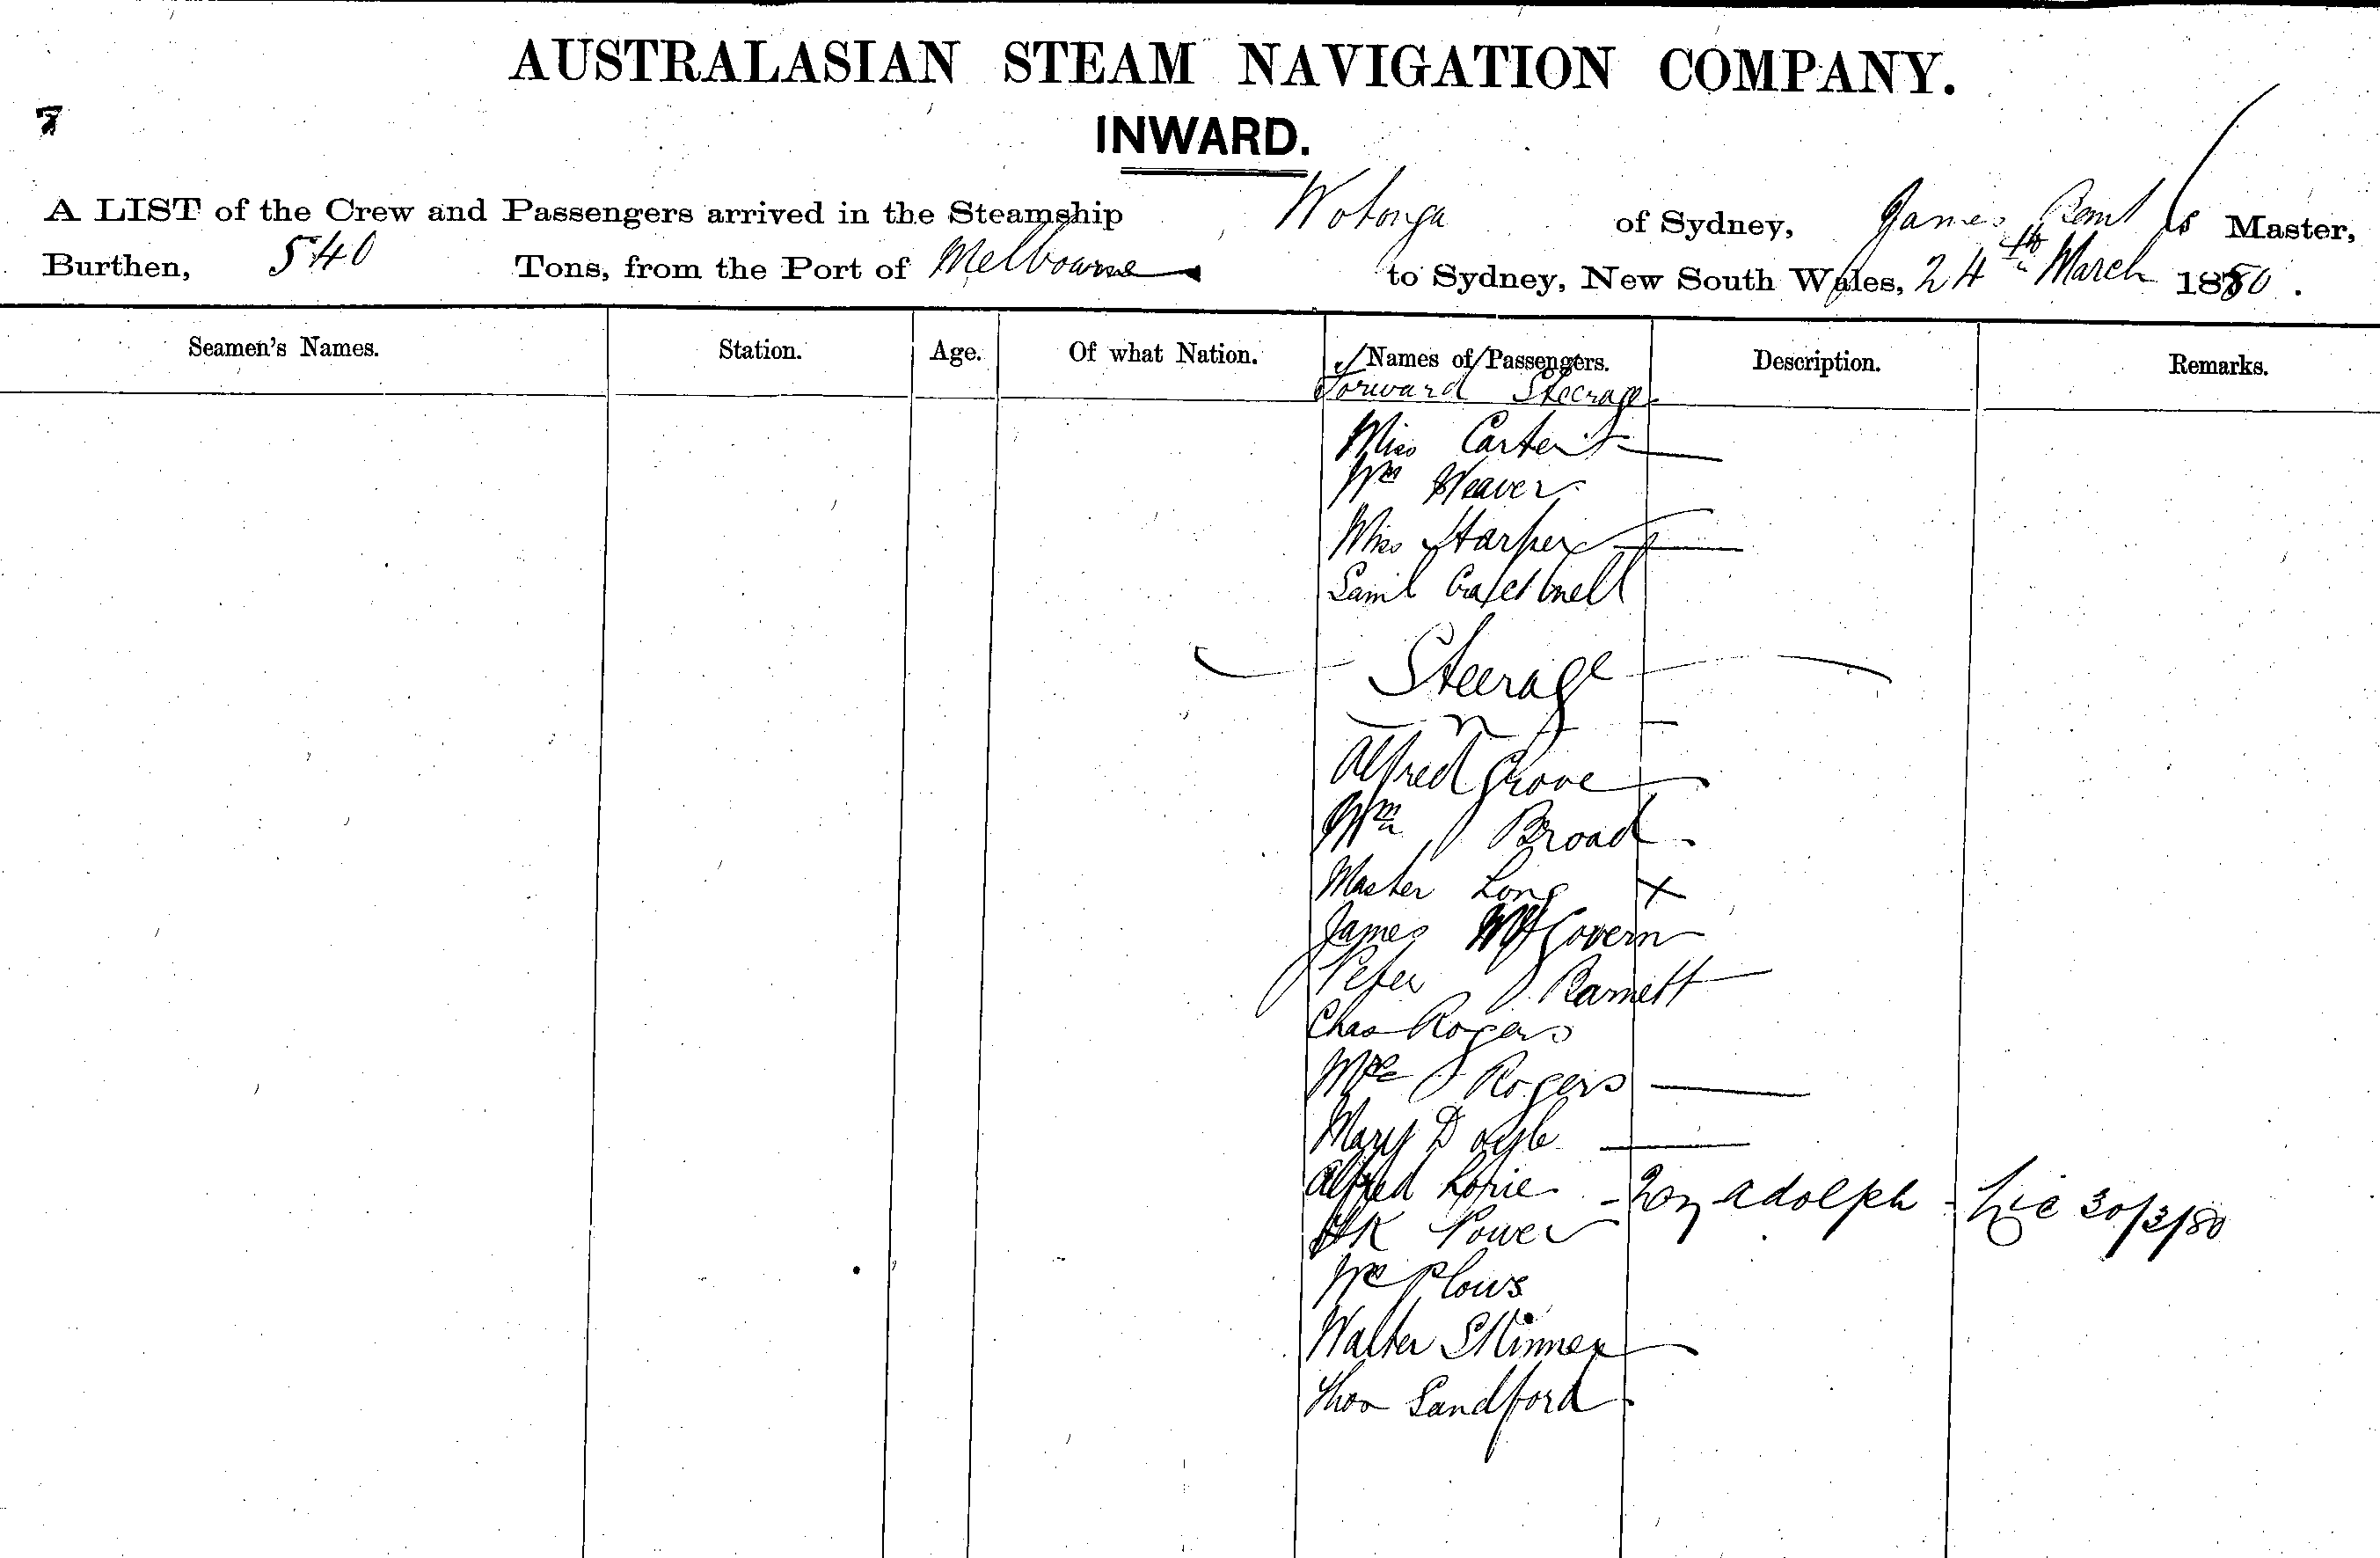 AUSTRALASIAN STEAM NAVIGATION COMPANY.
7
INWARD.
A LIST of the Crew and Passengers arrived in the Steamship Wotonga of Sydney, James Master,
Burthen, 540 Tons, from the Port of Melbourne to Sydney, New South Wales, 24th March 1880.
Seamen's Names. Station. Age. Of what Nation. Names of Passengers. Description. Remarks.
Forward Steerage
Miss Carter
Wm Weaver
Miss Harper
Saml
Steerage
Alfred Grove
Wm Broad
Master Long X
James McGovern
Peter Barnett
Chas Rogers
Mrs Rogers
Mary Doyle
Alfred Adolph Lic 30/3/80
Power
Wm Plows
Walter Skinner
Thos Sandford